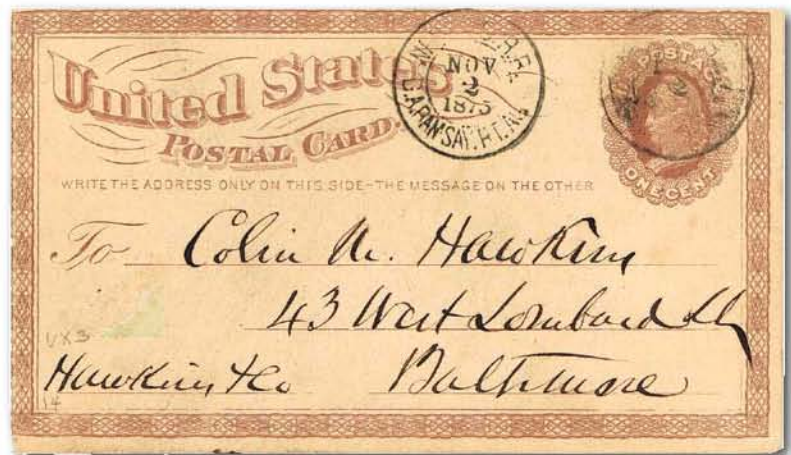 United States
POSTAL CARD.
NOV
2
1875
C.A. RAMSAY. P.T.
U.S. POSTAGE
ONE CENT
WRITE THE ADDRESS ONLY ON THIS SIDE-THE MESSAGE ON THE OTHER
To Colin M. Hawkins
43 West Lombard St
Hawkins & Co Baltimore
UX3
14